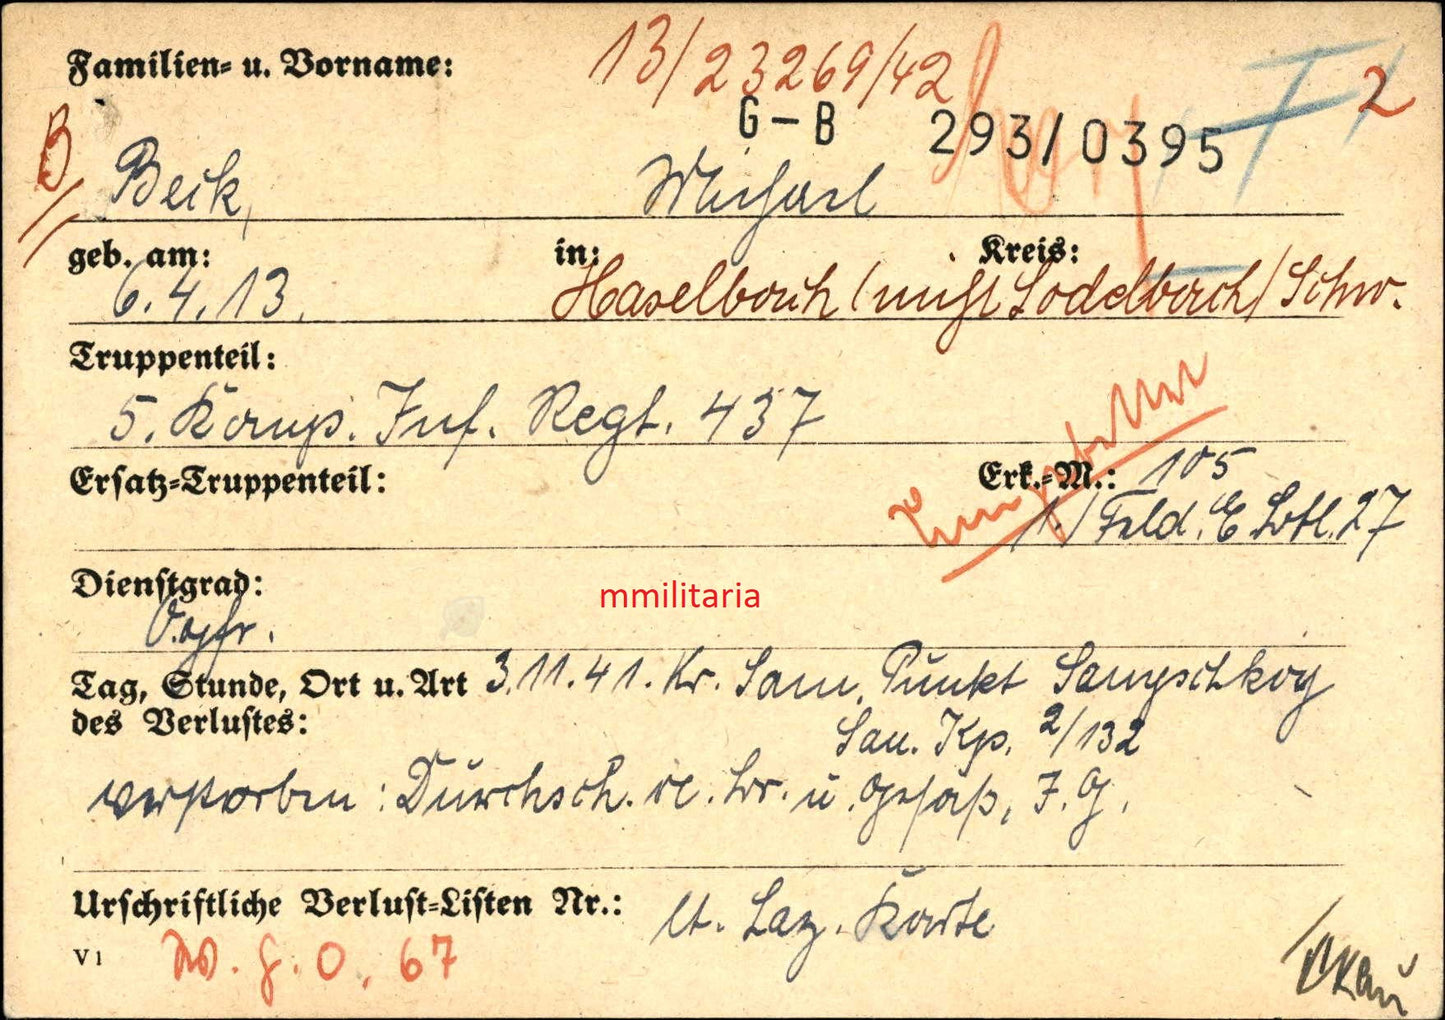 Familien- u. Vorname:
13/23269/42
2
G-B 293/0395
B/
Beck, Michael
geb. am: in: Kreis:
6.4.13. Haselbach (nicht Sodelbach) Schw.
Truppenteil:
5. Komp. Inf. Regt. 437
Ersatz-Truppenteil: Erk.-M.: 105
1./Feld. E Batl. 27
Dienstgrad:
mmilitaria
O.gfr.
Tag, Stunde, Ort u. Art 3.11.41. Kr. Sam. Punkt
des Verlustes:
San. Kp. 2/132
verstorben: Durchsch. re. u. Gesäß, I.G.
Urschriftliche Verlust-Listen Nr.: lt. Laz. Karte
V 1
67